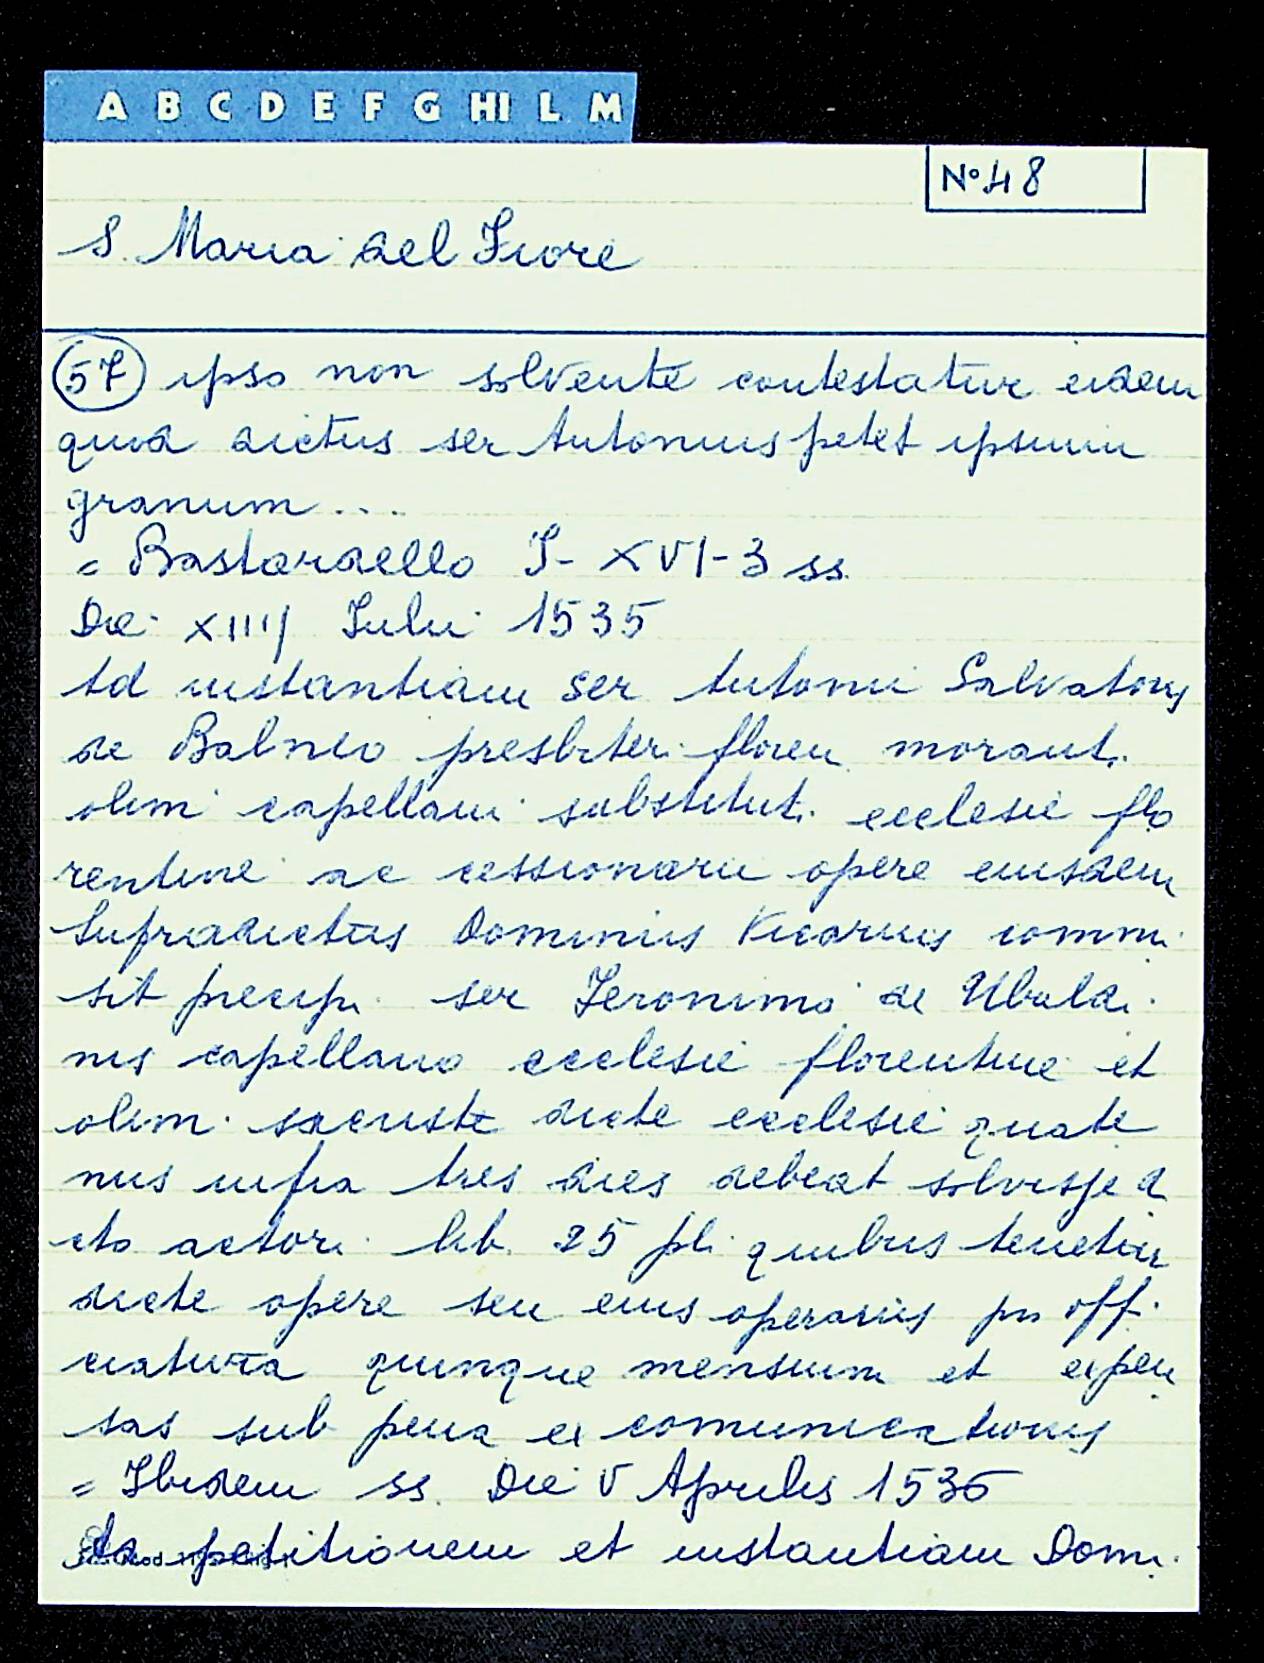 A B C D E F G HI L M
N° 48
S. Maria del Fiore
57 ipso non solvente contestatur eidem
quod dictus ser Antonius petet ipsum
granum ...
= Bastardello I - XVI - 3 ss.
Die XIIII Iulii 1535
Ad instantiam ser Antonii Salvatoris
de Balneo presbiteri floren. morant.
olim capellani substitut. ecclesie flo
rentine ac cessionarii opere eiusdem
Supradictus Dominus Vicarius commi
sit precipi ser Ieronimo de Ubaldi
nis capellano ecclesie florentine et
olim sacriste dicte ecclesie quate
nus infra tres dies debeat solvisse d
cto actori lib. 25 pli quibus tenetur
dicte opere seu eius operariis pro offi
ciatura quinque mensium et expen
sas sub pena excomunicationis
= Ibidem ss. Die V Aprilis 1536
Ad petitionem et instantiam Domi